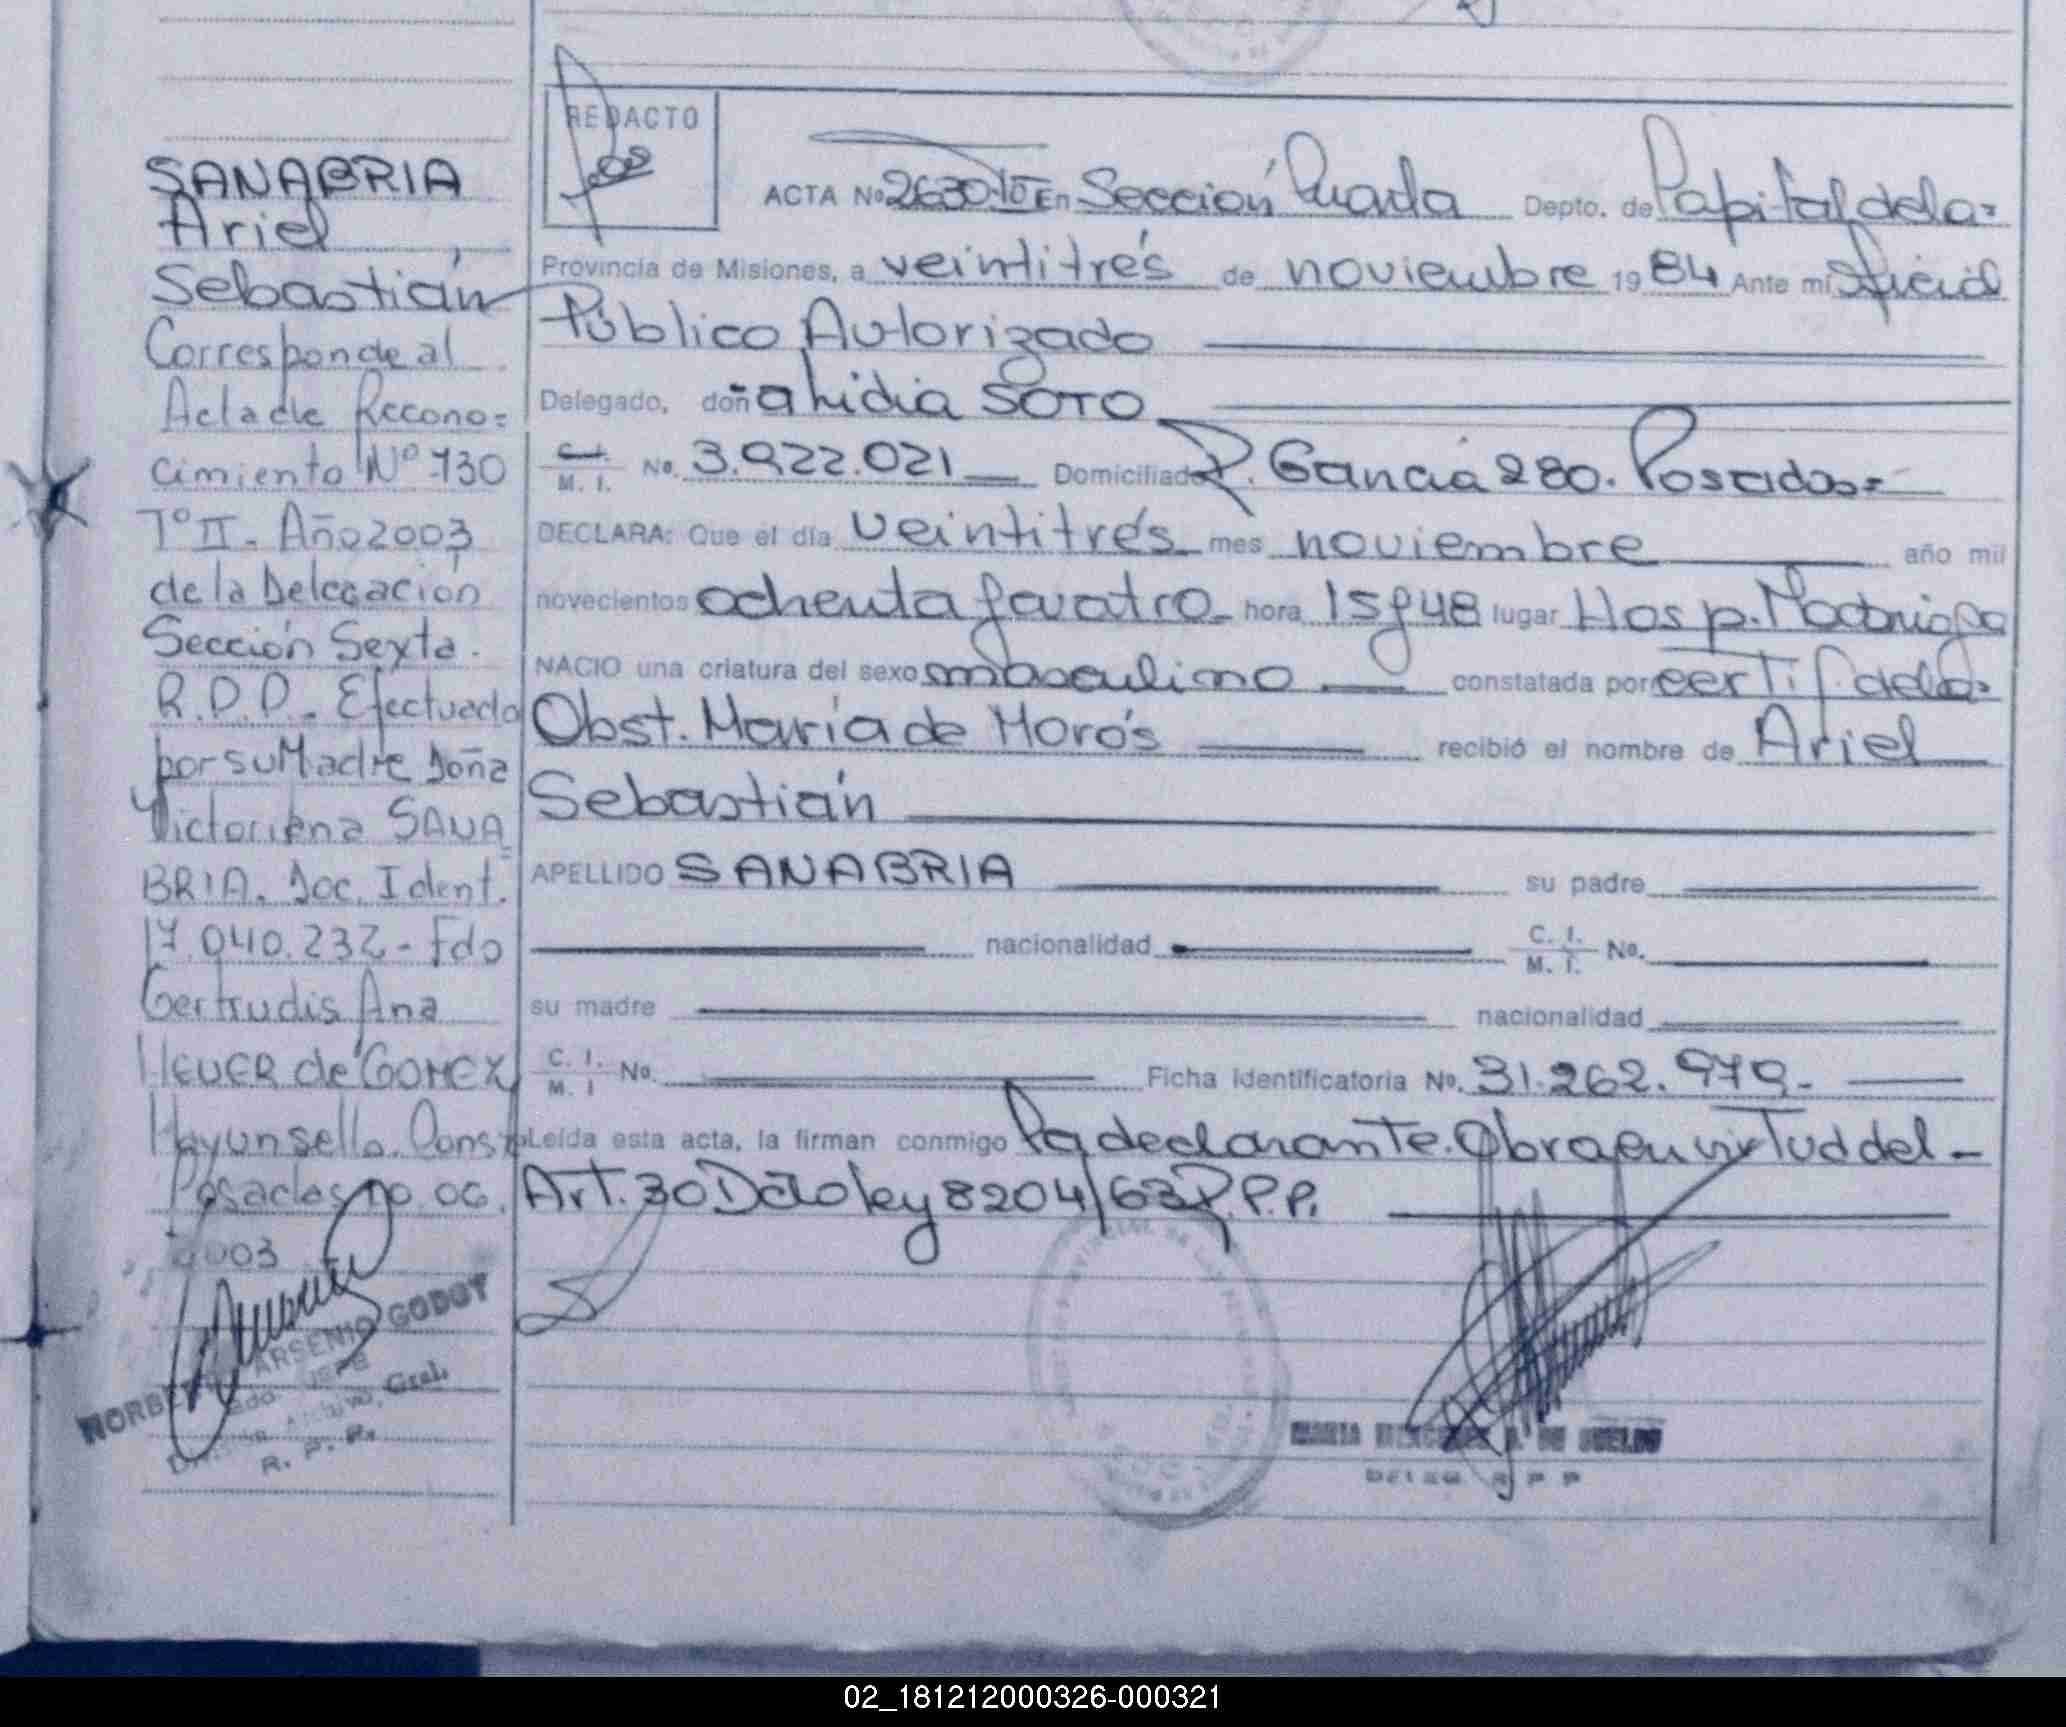 SANABRIA
Ariel
Sebastián
Corresponde al
Acta de Recono=
cimiento Nº 730
Tº II. Año 2003
de la Delegación
Sección Sexta.
R.D.D. Efectuado
por su Madre Doña
Victoriana SANA=
BRIA. Doc. Ident.
17.040.232- Fdo
Gertrudis Ana
HEUER de GOMEZ
Hay un sello. Const
Posadas
2003
ARSENIO GODOY
JEFE
Archivo Gral.
R. P. P.
REDACTO
ACTA No 2630 En Sección Cuarta Depto. de Capital de la=
Provincia de Misiones, a veintitrés de noviembre 1984 Ante mi Oficial
Público Autorizado
Delegado, doña Lidia SOTO
C.I. M. I. No. 3.922.021 Domiciliado P. García 280. Posadas=
DECLARA: Que el día veintitrés mes noviembre año mil
novecientos ochenta y cuatro hora 15 y 48 lugar Hosp. Madariaga
NACIO una criatura del sexo masculino constatada por certif. de la
Obst. María de Morós recibió el nombre de Ariel
Sebastián
APELLIDO SANABRIA su padre
nacionalidad C. I. M. I. No.
su madre nacionalidad
C. I. M. I No. Ficha Identificatoria No. 31.262.979.-
Leída esta acta, la firman conmigo la declarante. Obra en virtud del-
Art. 30 Dcto ley 8204/63 R.P.P.
MARIA
DELEG R P P
02_181212000326-000321